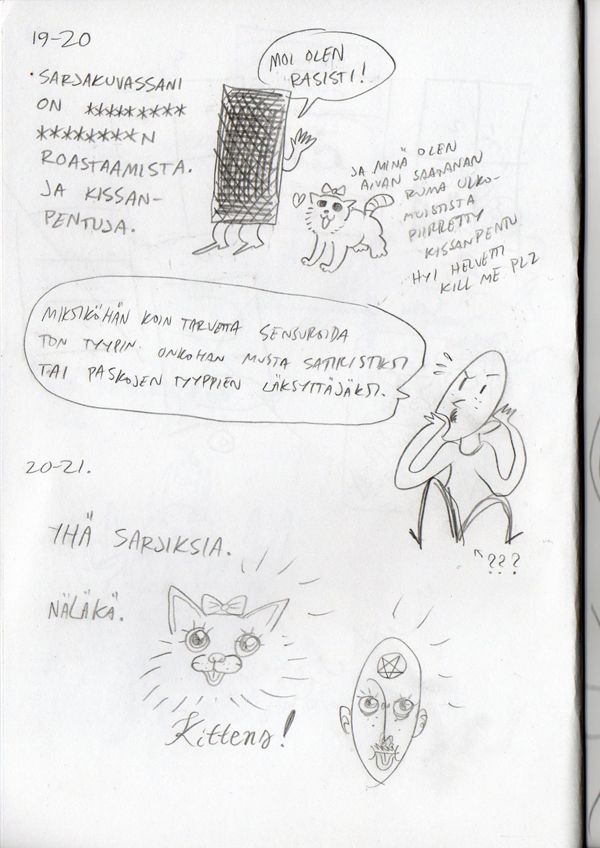 19-20
• SARJAKUVASSANI
ON *********
********N
ROASTAAMISTA.
JA KISSAN-
PENTUJA.
MOI OLEN
RASISTI!
JA MINÄ OLEN
AIVAN SAATANAN
RUMA ULKO-
MUISTISTA
PIIRRETTY
KISSANPENTU
HYI HELVETTI
KILL ME PLZ
MIKSIKÖHÄN KOIN TARVETTA SENSUROIDA
TON TYYPIN. ONKOHAN MUSTA SATIRISTIKSI
TAI PASKOJEN TYYPPIEN LÄKSYTTÄJÄKSI.
???
20-21.
YHÄ SARJIKSIA.
NÄLÄKÄ.
Kittens!